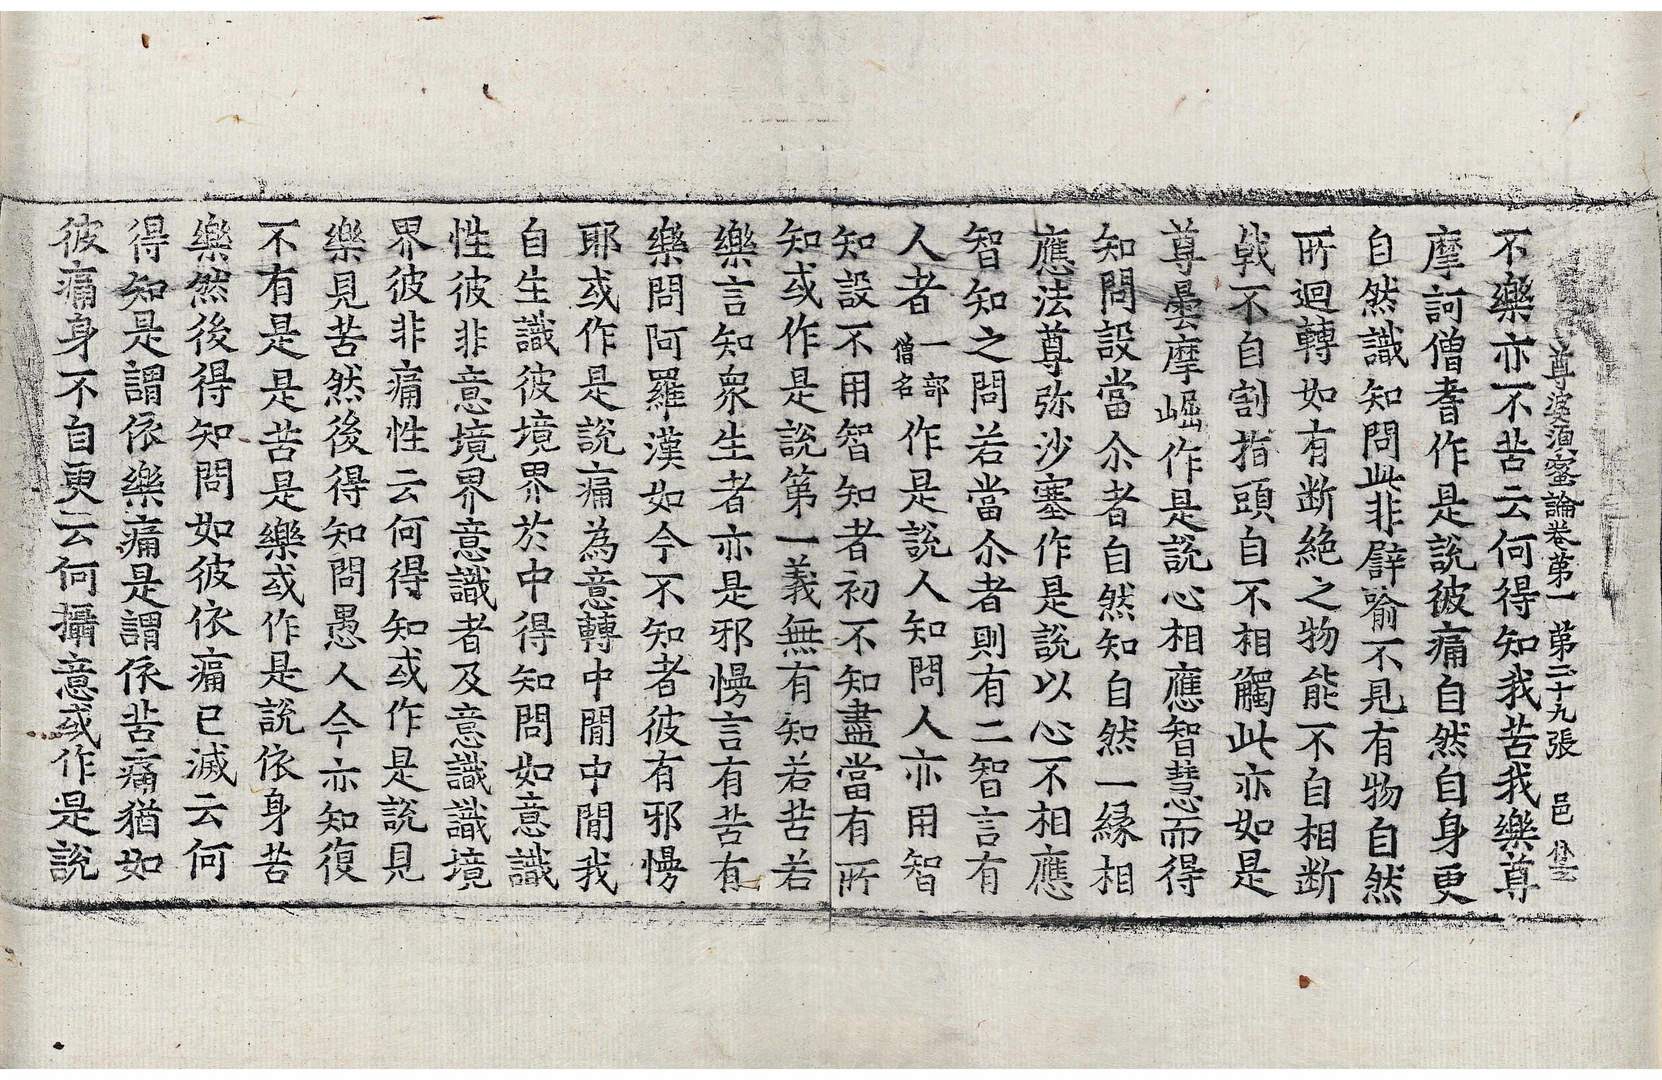 尊婆湏蜜論卷第一 第二十九張 邑
不樂亦不苦云何得知我苦我樂尊
摩訶僧耆作是說彼痛自然自身更
自然識知問此非譬喻不見有物自然
所迴轉如有断絶之物能不自相断
戟不自割指頭自不相觸此亦如是
尊曇摩崛作是說心相應智慧而得
知問設當尒者自然知自然一縁相
應法尊弥沙塞作是說以心不相應
智知之問若當尒者則有二智言有
人者一部僧名作是說人知問人亦用智
知設不用智知者初不知盡當有所
知或作是說第一義無有知若苦若
樂言知衆生者亦是邪慢言有苦有
樂問阿羅漢如今不知者彼有邪慢
耶或作是說痛為意轉中間中間我
自生識彼境界於中得知問如意識
性彼非意境界意識者及意識識境
界彼非痛性云何得知或作是說見
樂見苦然後得知問愚人今亦知復
不有是是苦是樂或作是說依身苦
樂然後得知問如彼依痛已滅云何
得知是謂依樂痛是謂依苦痛猶如
彼痛身不自更云何攝意或作是說